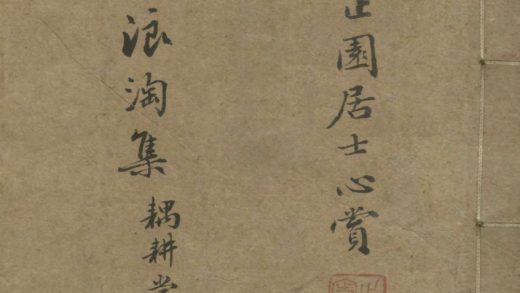 園居士心賞
浪淘集
耦耕